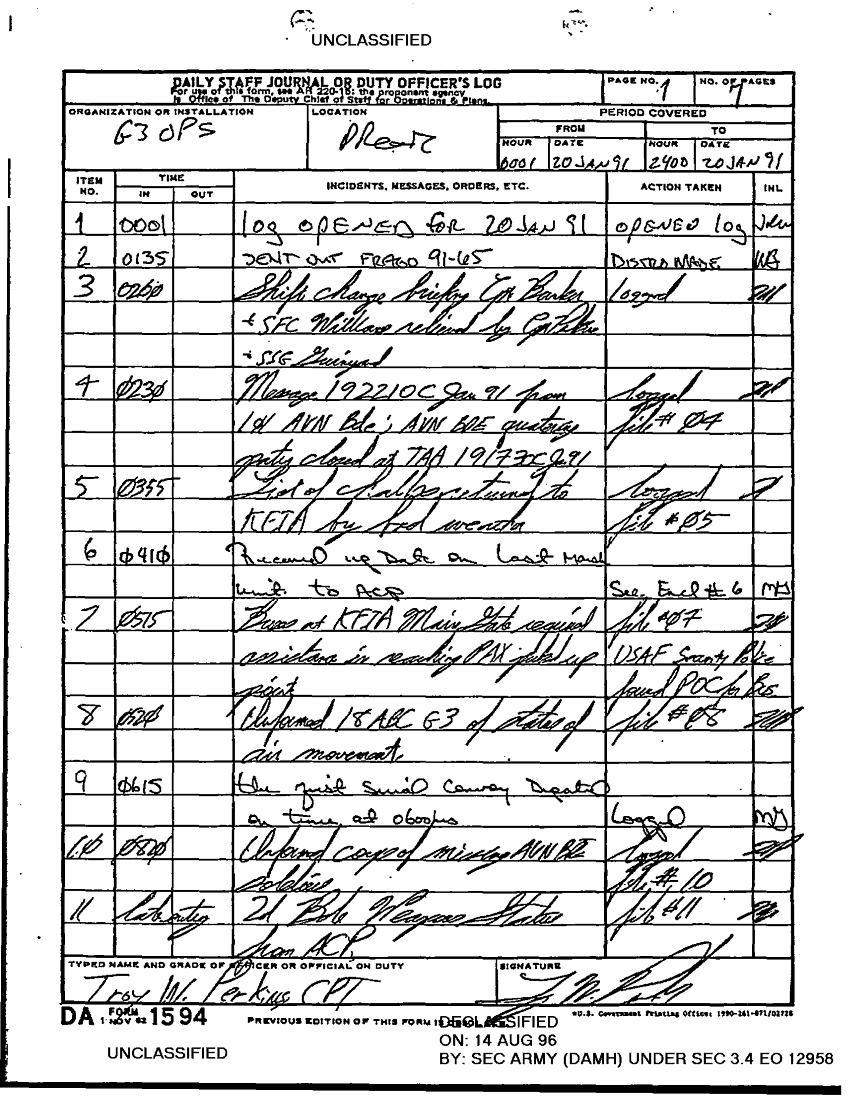 UNCLASSIFIED
DAILY STAFF JOURNAL OR DUTY OFFICER'S LOG
For use of this form, see AR 220-15; the proponent agency
is Office of The Deputy Chief of Staff for Operations & Plans.
PAGE NO. 1
NO. OF PAGES 7
ORGANIZATION OR INSTALLATION
G3 OPS
LOCATION
PERIOD COVERED
FROM TO
HOUR DATE HOUR DATE
0001 20 JAN 91 2400 20 JAN 91
ITEM NO. TIME IN OUT INCIDENTS, MESSAGES, ORDERS, ETC. ACTION TAKEN INL
1 0001 log OPENED for 20 JAN 91 OPENED log
2 0135 SENT OUT FRAGO 91-65 DISTRO MADE
3 0200 Shift change briefing Cpt Barker Logged
+ SFC relieved by
+ SSG Guinyard
4 0230 Message 192210C Jan 91 from logged
1st AVN Bde; AVN BDE quartering file # 04
party closed at TAA
5 0355 List of returned to logged
KFIA by bad weather file # 05
6 0410 Received up Date on Last March
unit to ACP See Encl # 6 MJ
7 0515 Buses at KFIA Main Gate required file #07
assistance in reaching PAX pick up USAF Security Police
point found POC for Bus
8 0520 Informed 18 ABC G3 of status of file #08
air movement.
9 0615 the first Serial Convoy Departed
on time at 0600hrs Logged MJ
10 Informed corps of missing AVN BDE logged
soldiers file # 10
11 late entry 2d Bde Weapons Status file #11
from ACP
TYPED NAME AND GRADE OF OFFICER OR OFFICIAL ON DUTY
Troy W. Perkins CPT
SIGNATURE
DA FORM 1 NOV 62 1594
PREVIOUS EDITION OF THIS FORM IS
*U.S. Government Printing Office: 1990-261-871/02728
UNCLASSIFIED
DECLASSIFIED
ON: 14 AUG 96
BY: SEC ARMY (DAMH) UNDER SEC 3.4 EO 12958